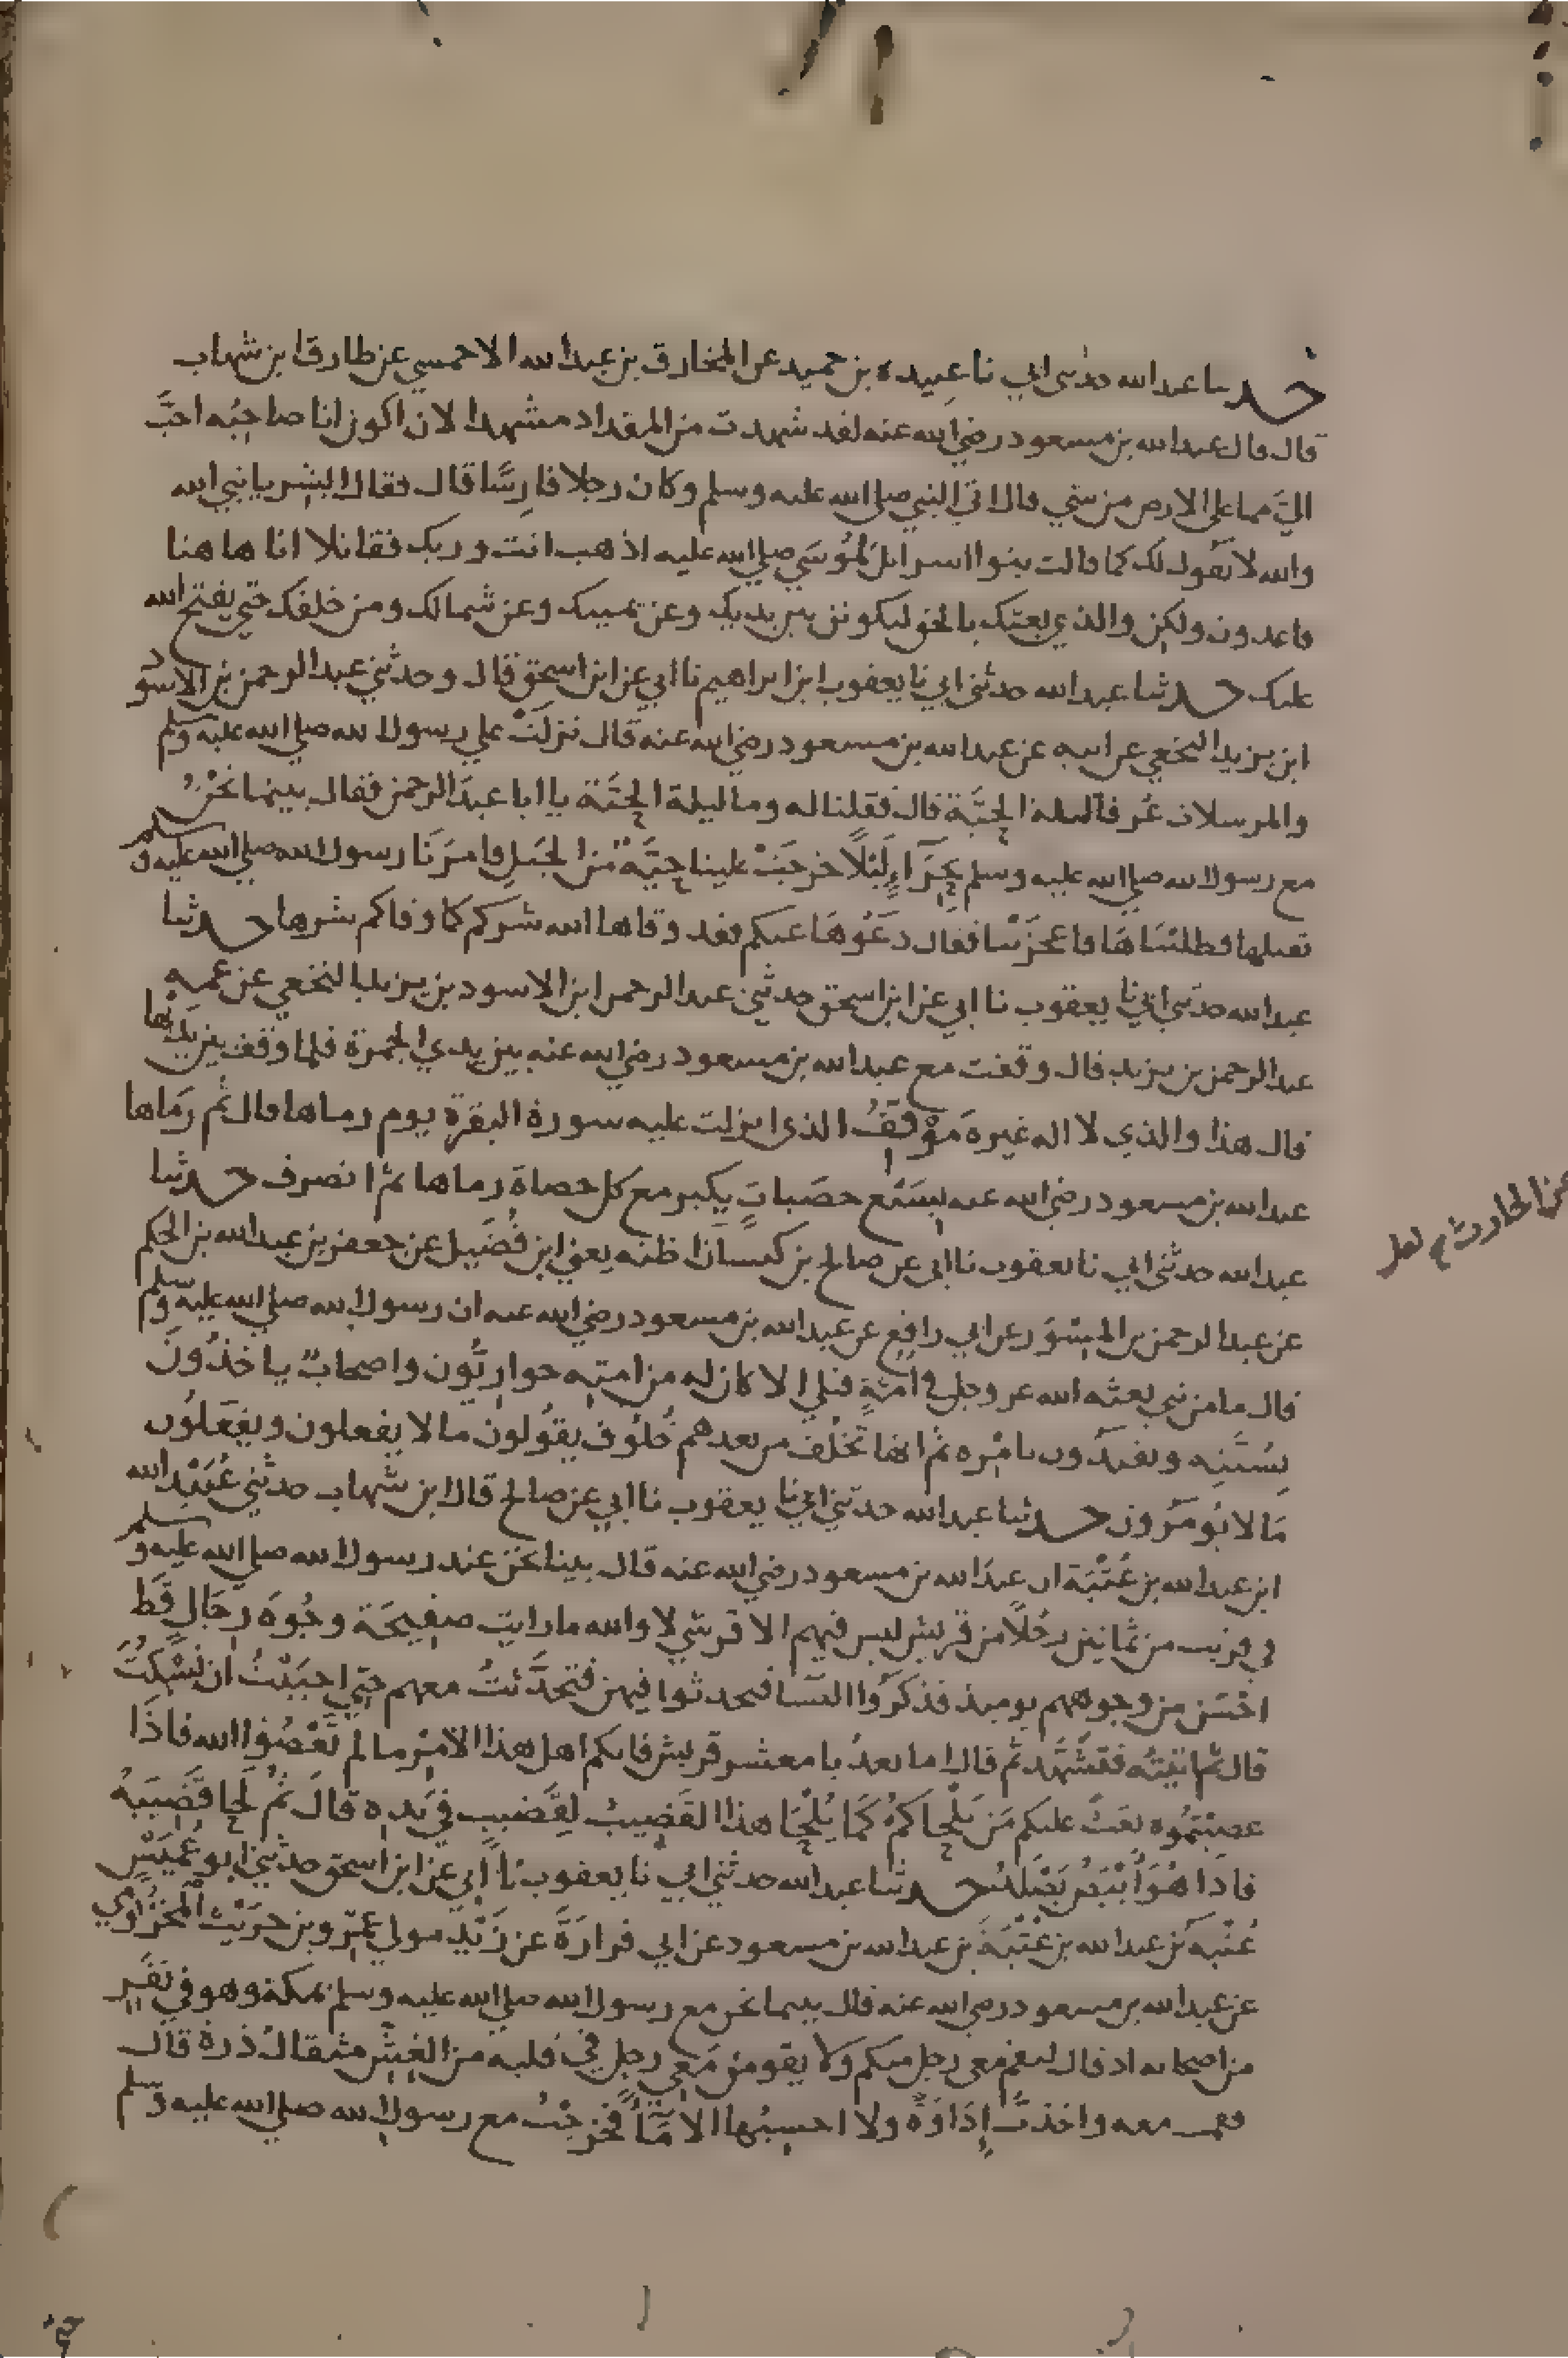 حدثنا عبد الله حدثني ابي نا عبيدة بن حميد عن المخارق بن عبد الله الاحمسي عن طارق ابن شهاب
قال قال عبد الله بن مسعود رضي الله عنه لقد شهدت من المقداد مشهدا لان اكون انا صاحبه احبَّ
اليَّ مما على الارض من شي قال اتى النبي صلى الله عليه وسلم وكان رجلا فارسًا قال فقال ابشر يا نبي الله
والله لا نقول لك كما قالت بنوا اسرائل لموسى صلى الله عليه اذهب انت وربك فقاتلا انا هاهنا
قاعدون ولكن والذي بعثك بالحق ليكونن بين يديك وعن يمينك وعن شمالك ومن خلفك حتى يفتح الله
عليك حدثنا عبد الله حدثني ابي نا يعقوب ابن ابراهيم نا ابي عن ابن اسحق قال وحدثني عبد الرحمن بن الاسود
ابن يزيد النخعي عن ابيه عن عبد الله بن مسعود رضي الله عنه قال نزلَتْ على رسول الله صلى الله عليه وسلم
والمرسلات عُرفا ليلة الحيَّة قال فقلنا له وما ليلة الحيَّة يا ابا عبدَ الرحمن فقال بينما نحْنُ
مع رسول الله صلى الله عليه وسلم بحِرَاءٍ لَيْلًا خرجَتْ علينا حيَّةٌ من الجَبَلِ فامرَنَا رسول الله صلى الله عليه وسلم
بقتلها فطلبْنَاهَا فاعجزَتْنا فقال دَعُوهَا عنكم فقد وقاها الله شرَّكم كما وقاكم شرها حدثنا
عبد الله حدثني ابي نا يعقوب نا ابي عن ابن اسحق حدثني عبد الرحمن ابن الاسود بن يزيد النخعي عن عمه
عبد الرحمن بن يزيد قال وقفت مع عبد الله بن مسعود رضي الله عنه بين يدي الجمرة فلما وقف بين يديها
قال هذا والذي لا اله غيره مَوْقِفُ الذي انزلت عليه سورة البقرة يوم رماها قال ثم رمَاها
عبد الله بن مسعود رضي الله عنه بسَبْع حصَياتٍ يكبر مع كل حصاة رماها ثم انصرف حدثنا
عبد الله حدثني ابي نا يعقوب نا ابي عن صالح بن كيسان اظنه يعني ابن فُضَيل عن جعفر بن عبد الله بن الحكم
عن الحارث
عن عبد الرحمن بن المِسْوَر عن ابي رافع عن عبد الله بن مسعود رضي الله عنه ان رسول الله صلى الله عليه وسلم
قال ما من نبي بعثه الله عز وجل في امةٍ قبلي الا كان له من امته حواريُّون واصحابٌ ياخذُونَ
بسُنَّتِه ويقتدُون بامْره ثم انها تخْلُف من بعدهم خُلُوف يقُولون ما لا يفعلون ويفعَلُون
مَا لا يُومَرُون حدثنا عبد الله حدثني ابي نا يعقوب نا ابي عن صالح قال ابن شهاب حدثني عُبَيْد الله
ابن عبد الله بن عُتْبَة ان عبدَ الله بن مسعود رضي الله عنه قال بينا نحن عند رسول الله صلى الله عليه وسلم
في قريب من ثمانين رجُلًا من قريش ليس فيهم الا قرشي لا والله ما رايت صفِيحَة وجُوهَ رجَالٍ قَط
احْسَن من وجوههم يوميذ فذكرُوا النسَا فتحدثوا فيهن فتحدَّثتُ معهم حتى احبَبْتُ ان نسْكتَ
قال ثم اتيتُه فتشهَّد ثم قال اما بعدُ يا معشر قريش فانكم اهل هذا الامْر ما لم تَعْصُوا الله فاذَا
عصيْتمُوه بعَثَ عليكم مَن يَلْحَاكمُ كَمَا يُلْحَا هذا القَضِيبُ لِقَضيبٍ في يَدِه قالَ ثمَّ لَحَا قَضِيبَهُ
فاذَا هُوَ ابْيَضُ يَصْلِدُ حدثنا عبد الله حدثني ابي نا يعقوب نا ابي عن ابن اسحق حدثني ابو عُمَيْسٍ
عُتْبة بن عبد الله بن عُتْبَةَ بن عبد الله بن مسعود عن ابي فزارَةَ عن زَيْدٍ مولى عَمْرو بن حريْث المَخْزُومي
عن عبد الله بن مسعود رضي الله عنه قال بينما نحن مع رسول الله صلى الله عليه وسلم بمكة وهو في نفَرٍ
من اصحابه اذ قال ليقم معي رجل منكم ولا يقومن مَعي رجل في قلبه من الغِشِّ مثقالُ ذرة قال
فقمت معه واخذتُ إِدَاوَةً ولا احسِبُها الا مَاً فخرجْتُ مع رسول الله صلى الله عليه وسلم
حتى